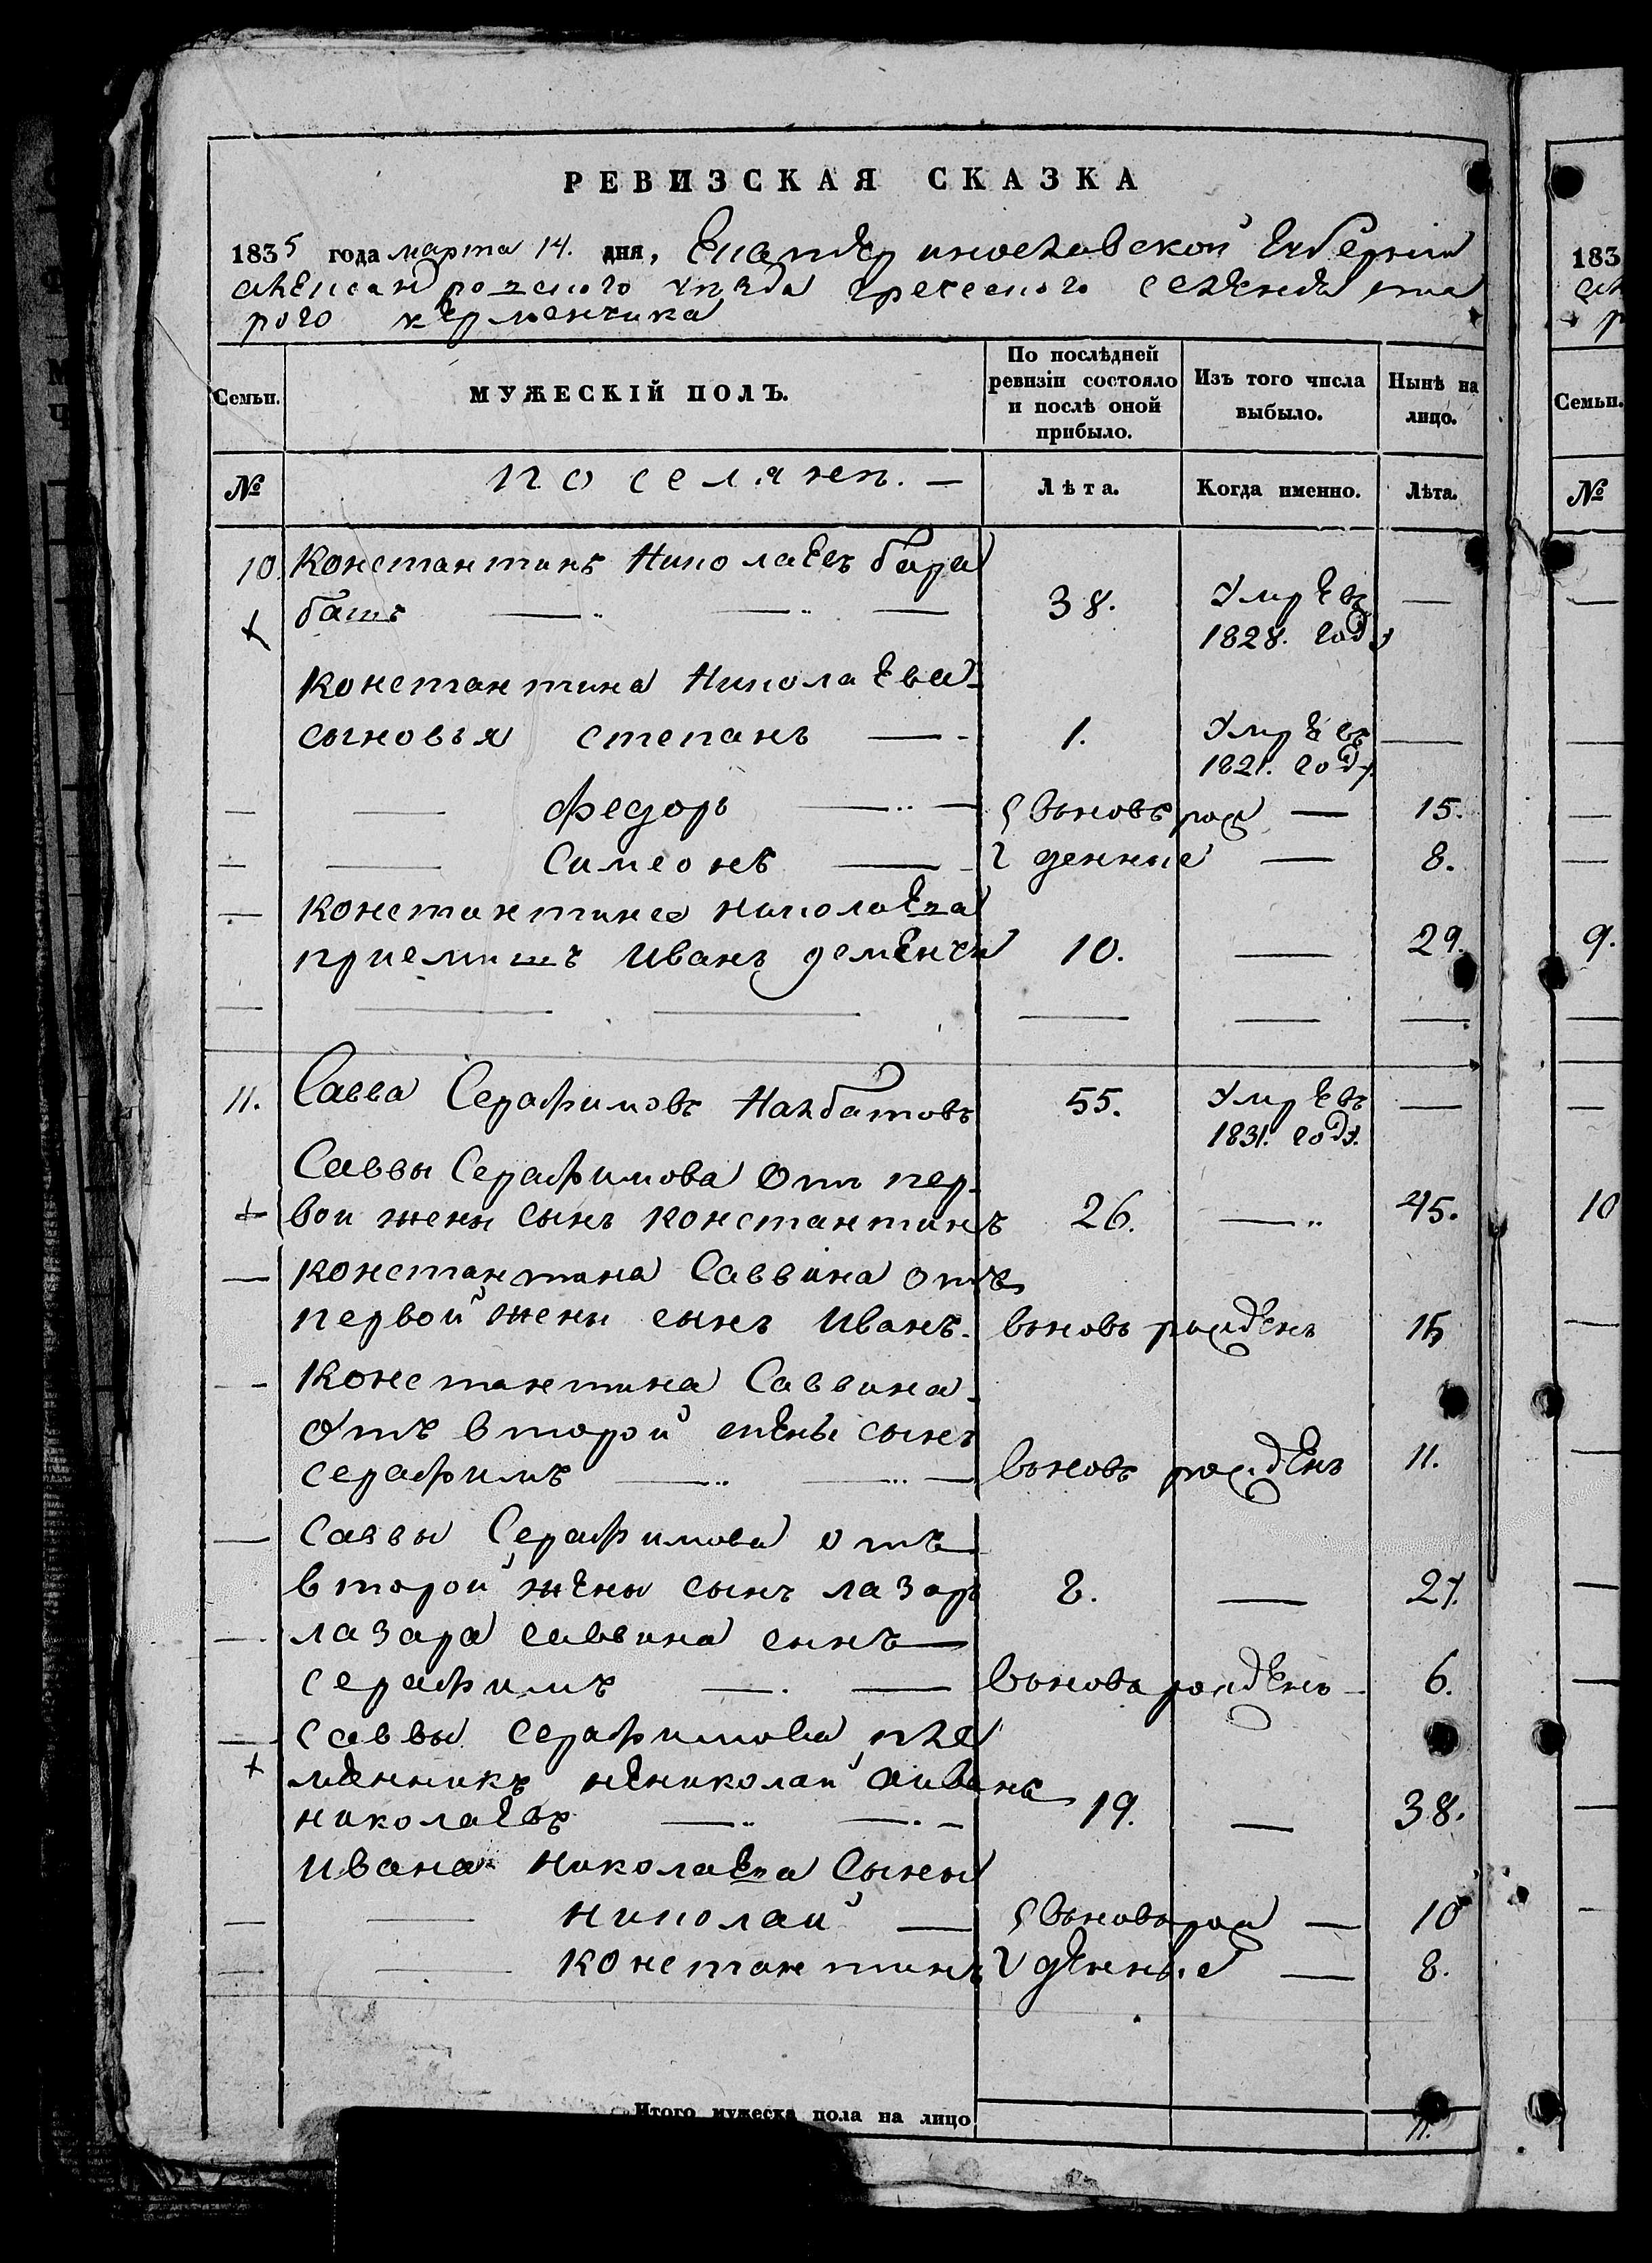 РЕВИЗСКАЯ СКАЗКА
1835 года марта 14. дня, Екатеринославской Губернии
александровского уезда греческого селения ста
рого керменчика
Семьи.
МУЖЕСКІЙ ПОЛЪ.
По послѣдней ревизіи состояло и послѣ оной прибыло.
Изъ того числа выбыло.
Нынѣ на лицо.
№
поселянъ. —
Лѣта.
Когда именно.
Лѣта.
10 Константинъ Николаевъ бара
башъ — — — 38. Умре въ —
1828. году
Константина Николаева
сыновья степанъ — 1. Умре въ —
1821. году
— — федоръ — вновь рож — 15.
— — Симеонъ — денные — 8.
— Константина николаева
приемишъ Иванъ 10. — 29.
11. Савва Серафимовъ Налбатовъ 55. Умре въ —
1831. году.
Саввы Серафимова Отъ пер
+ вои жены Сынъ константинъ 26. — 45.
— константина Саввина отъ
первой жены сынъ Иванъ. вновь рожденъ 15
— Константина Саввина
Отъ второй жены сынъ
серафимъ — — вновь рожденъ 11.
— Саввы Серафимова отъ
второй жены сынъ лазарь 8. — 27.
— лазаря саввина сынъ
серафимъ — — вновь рожденъ — 6.
— саввы серафимова пле
+ менникъ не николай а иванъ
николаевъ — — 19. — 38.
ивана николаева Сыны
— — николай — вновь рож — 10
— — константинъ денные — 8.
Итого мужеска пола на лицо
11.
183
Семьи.
№
9.
10